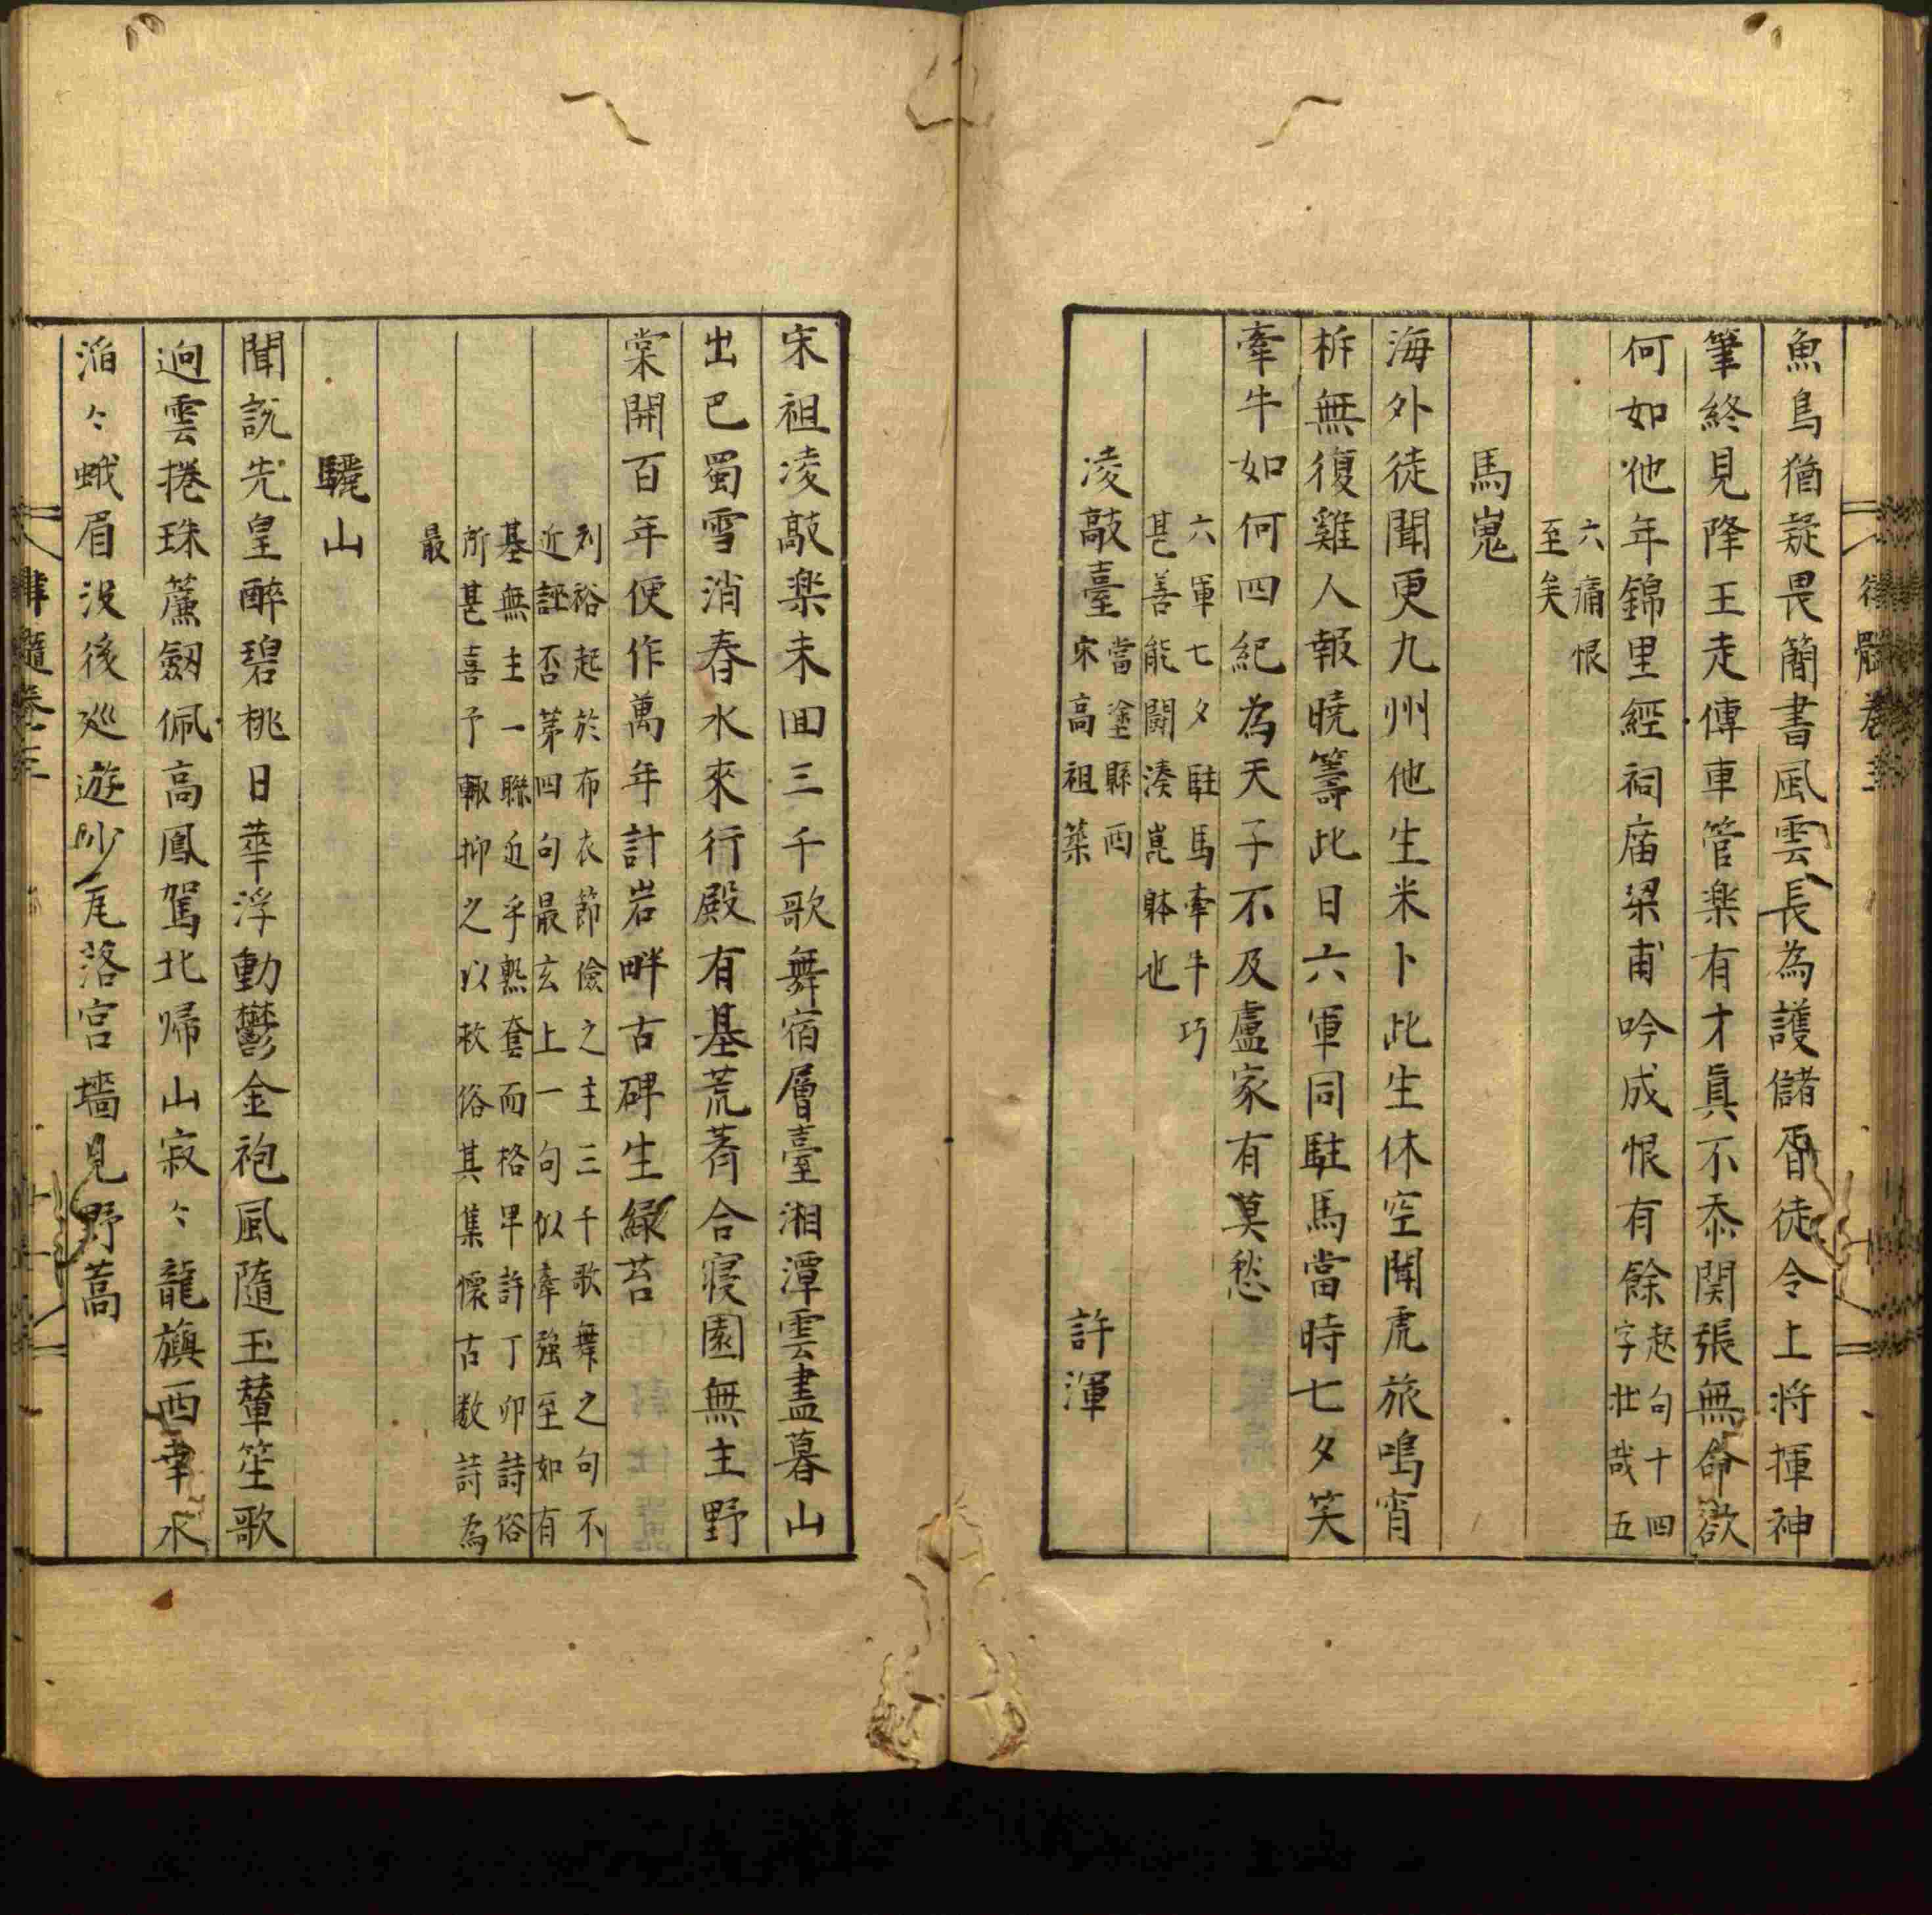 律髓卷三
魚鳥猶疑畏簡書風雲長為護儲胥徒令上将揮神
筆終見降王走傳車管楽有才真不忝関張無命欲
何如他年錦里經祠庙梁甫吟成恨有餘
起句十四
字壮哉五
六痛恨
至矣
馬嵬
海外徒聞更九州他生米卜此生休空聞虎旅鳴宵
柝無復雞人報曉籌此日六軍同駐馬當時七夕笑
牽牛如何四紀為天子不及盧家有莫愁
六軍七夕駐馬牽牛巧
甚善能鬪湊崑躰也
凌敲臺
當塗縣西
宋高祖築
許渾
宋祖凌敲楽未囬三千歌舞宿層臺湘潭雲盡暮山
出巴蜀雪消春水來行殿有基荒薺合寝園無主野
棠開百年便作萬年計岩畔古碑生緑苔
列裕起於布衣節儉之主三千歌舞之句不
近誣否苐四句最玄上一句似牽强至如有
基無主一聯近乎熟套而格卑許丁卯詩俗
所甚喜予輙抑之以救俗其集懷古数詩為
最
驪山
聞說先皇醉碧桃日華浮動鬱金袍風隨玉輦笙歌
迥雲捲珠簾劔佩高鳳駕北帰山寂〻龍旗西幸水
滔〻蛾眉没後廵遊少瓦落宫墻見野蒿
律髓卷三